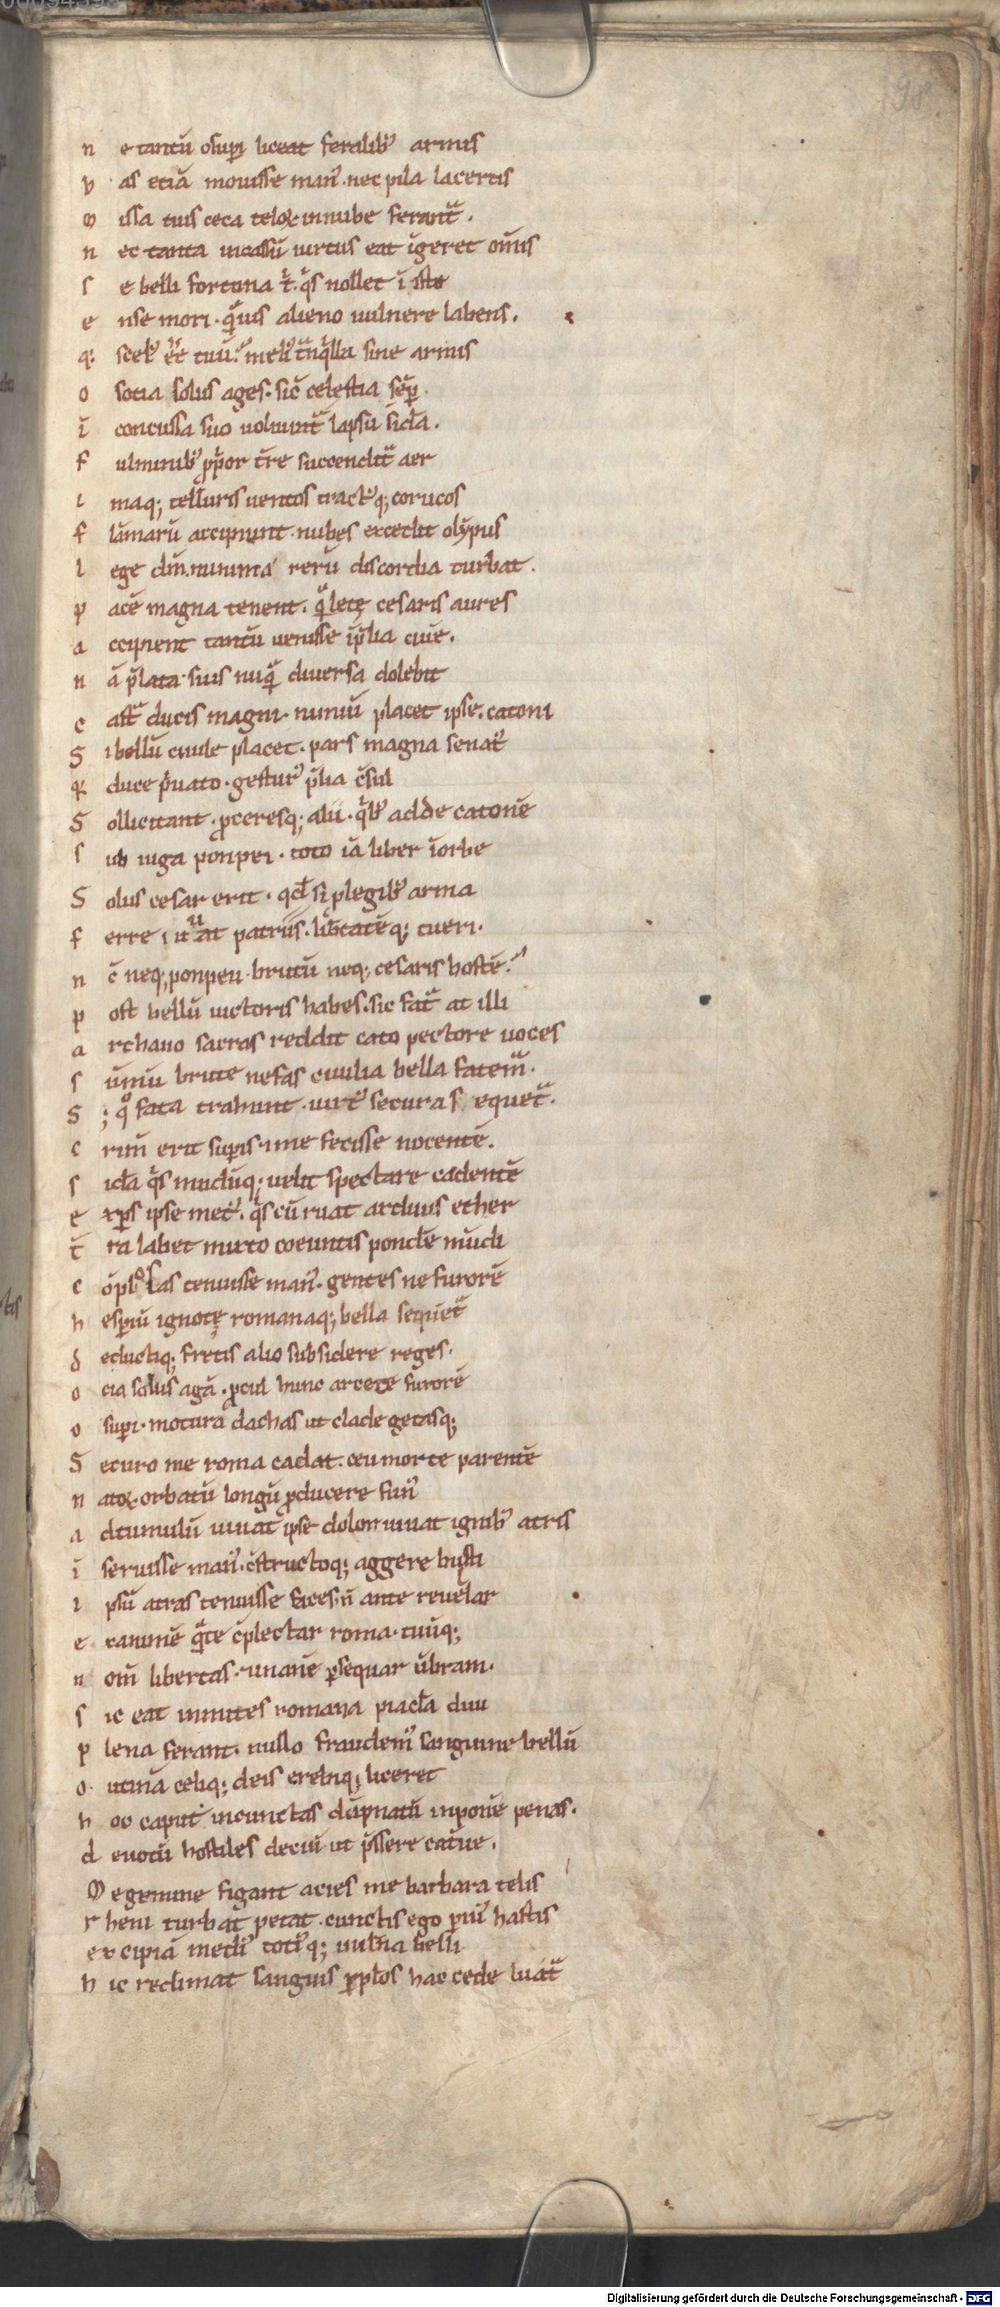 98
n e tantū osupi liceat feralib᷒ armis
v as etiā mouisse man᷒. nec pila lacertis
m issa tuis ceca teloꝝ innube ferant᷑.
n ec tanta incassū uirtus eat īgeret om̄is
s e belli fortuna t᷑. q̇s nollet ī isto
e nse mori. quis alieno uulnere labens.
q: scel᷒ eē tuū. meli᷒ tnq̄lla sine armis
o socia solus ages. sic̄ celestia sēꝑ
ī concussa suo uoluunt᷑ lapsu sid̄a.
f ulminib᷒ ꝓpior t̄re succendit᷑ aer
i maq; telluris uentos tract᷒q; coruscos
f lāmarū accipiunt. nubes excedit olȳpus
l ege dm̄. minima rerū discordia turbat.
p acē magna tenent. q̄ lete cesaris aures
a ccipient tantū uenisse īp̄lia ciuē.
n ā p̄lata suis nūq̄ diuersa dolebit
c ast᷑ ducis magni. nimiū placet ipse. catoni
S i bellū ciuile placet. pars magna senat᷒
q: duce p̄uato. gestur᷒ p̄lia c̄sul
S ollicitant. ꝓceresq; alii. q̇b᷒ adde catonē
s ub iuga ponpei. toto iā liber īorbe
S olus cesar erit. qd̄ si ꝓlegib᷒ arma
f erre iuuat patriis. lib̄tatēq; tueri.
n c̄ neq; ponpeii. brutū neq; cesaris hostē.
p ost bellū uictoris habes. sic fat᷑ at illi
a rchano sacras reddit cato pectore uoces
s ūmū brute nefas ciuilia bella fatem᷑.
S ; qͦ fata trahunt. uirt᷒ secura s equet᷑.
c rim̄ erit supis. ime fecisse nocentē.
s id̄a q̇s mūdūq; uelit spectare cadentē
e xꝑs ipse met᷒. q̇s cū ruat arduus ether
t̄ ra labet mixto coeuntis pond̄e mūdi
c ōpb᷒sas tenuisse man᷒. gentes ne furorē
h esperiū ignotę romanaq; bella sequēt᷑
d eductiq; fretis alio subsidere reges.
o cia solus agā. ꝓcul hunc arcete furorē
o supi. motura dachas ut clade getasq;
S ecuro me roma cadat. ceu morte parentē
n atoꝝ orbatū longū ꝓducere fun᷒
a dtumulū iuuat ipse dolor iuuat ignib᷒ atris
ī seruisse man᷒. c̄structoq; aggere busti
i psū atras tenuisse faces. n̄ ante reuelar
e xanimē q̄te c̄plectar roma. tuūq;
n om̄ libertas. inanē ꝑsequar ūbram.
s ic eat inmites romana piacl̄a diui
p lena ferant. nullo fraudem᷒ sanguine bellū
o utinā celiq; deis erebiq; liceret
h oc caput incunctas dāpnatū inponē penas.
d euotū hostiles deciū ut p̄ssere cat̄ue.
M e gemine figant acies me barbara telis
r heni turba petat. cunctis ego ꝑui᷒ hastis
ex cipiā medi᷒ toti᷒q; uuln̄a belli
h ic redimat sanguis ꝓpl̄os hac cede luat᷑
Digitalisierung gefördert durch die Deutsche Forschungsgemeinschaft - DFG